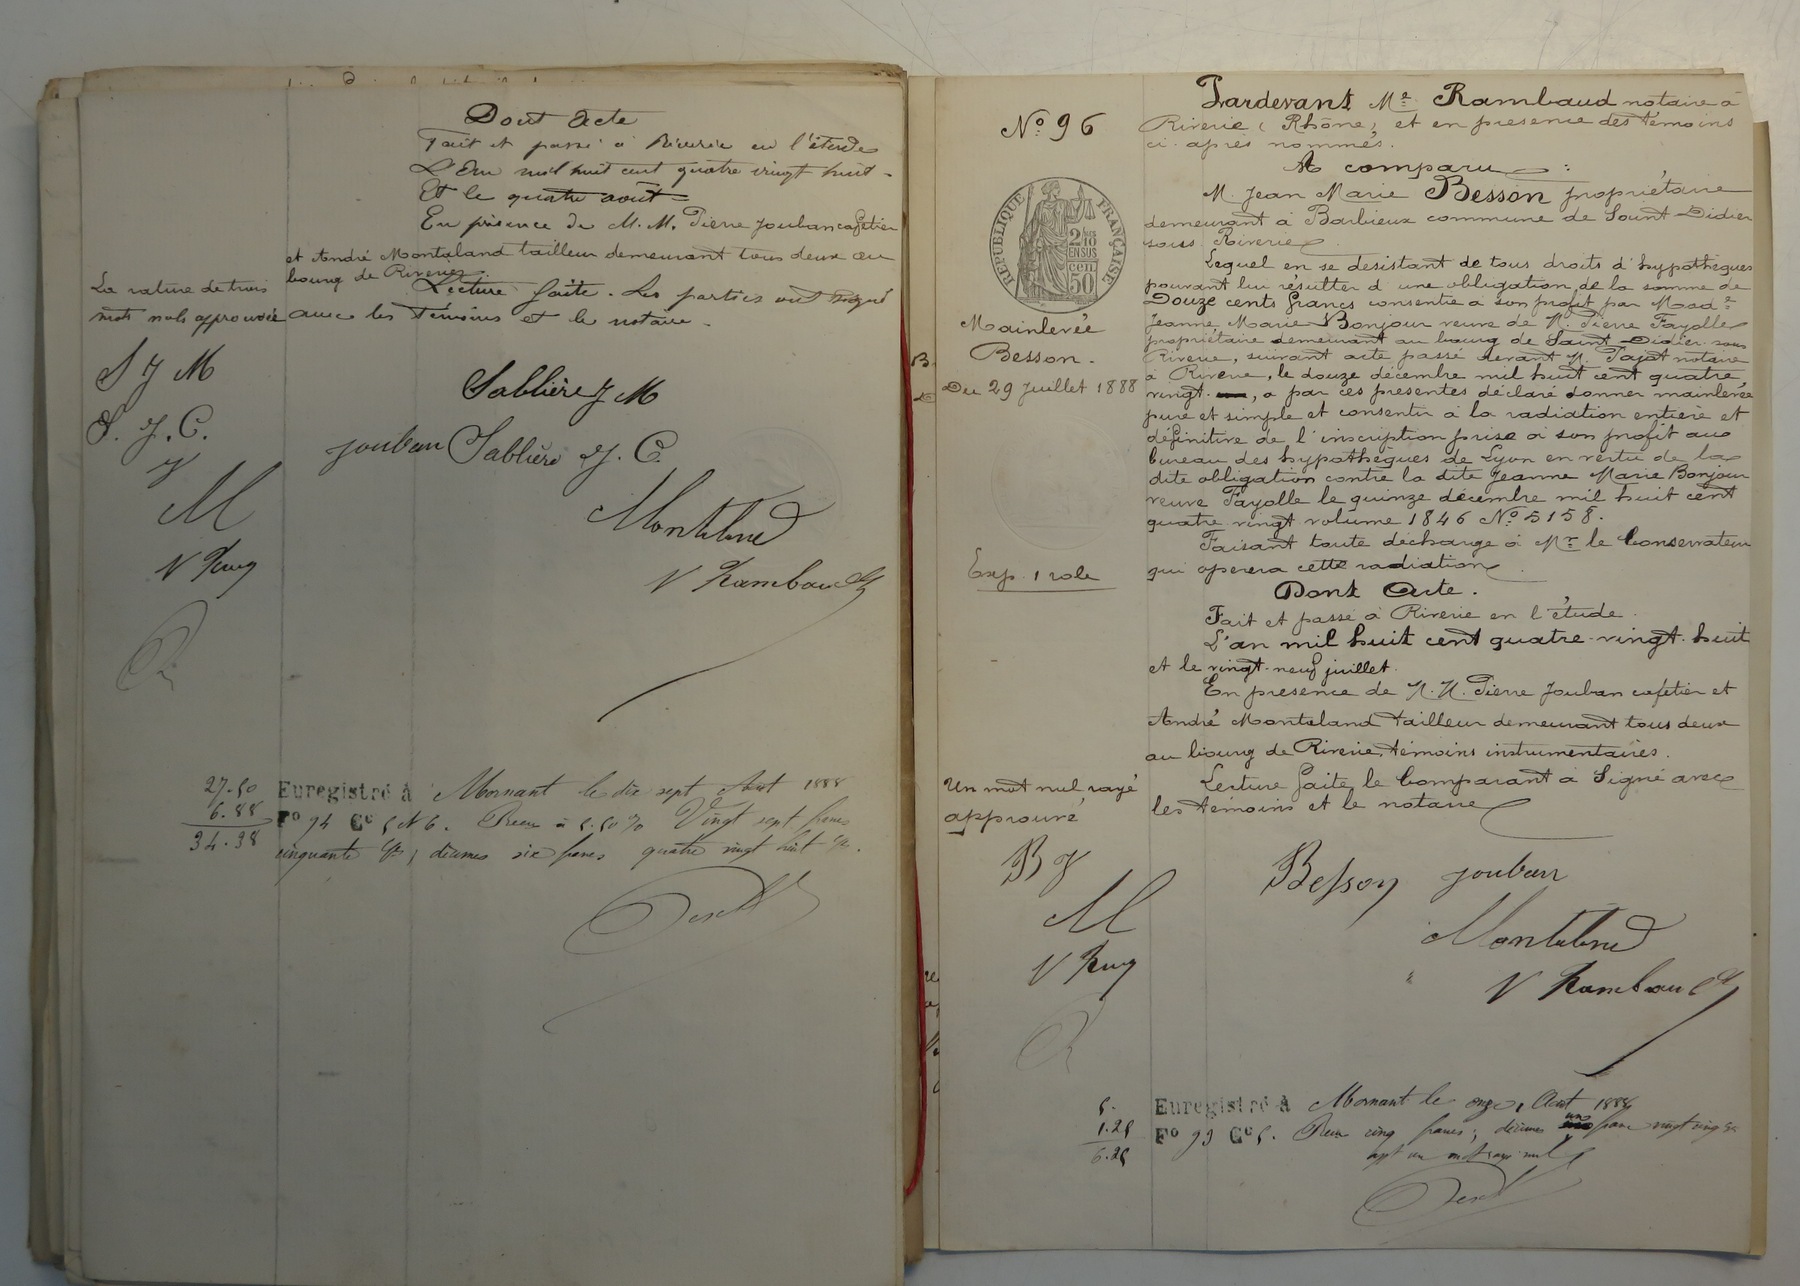 Dont Acte
Fait et passé à Riverie en l'étude
L'An mil huit cent quatre vingt huit -
Et le quatre août
En présence de M. M. Pierre Jouban cafetier
et André Montaland tailleur demeurant tous deux au
bourg de Riverie.
Lecture faite. Les parties ont signé
avec les témoins et le notaire.
La rature de trois
mots nuls approuvée
S J M
S. J. C.
J
M
V Ramb
Sablière J M
jouban Sablière J. C.
Montaland
V Rambaud
27.50
6.88
34.38
Enregistré à Mornant le dix sept Août 1888
Fo 94 Ce 5 N 6. Reçu à 5.50 % Vingt sept francs
cinquante ces, décimes six francs quatre vingt huit ces.
No 96
RÉPUBLIQUE FRANÇAISE
2/10
EN SUS
50 cen
Mainlevée
Besson.
Du 29 Juillet 1888
Exp. 1 role
Un mot nul rayé
approuvé
B J
M
V Ramb
Pardevant Me Rambaud notaire à
Riverie (Rhône) et en présence des témoins
ci-après nommés.
A comparu :
M. Jean Marie Besson propriétaire
demeurant à Barbieux commune de Saint-Didier
sous Riverie.
Lequel en se désistant de tous droits d'hypothèques
pouvant lui résulter d'une obligation de la somme de
Douze cents francs consentie à son profit par Made
Jeanne Marie Bonjour veuve de M. Pierre Fayolle
propriétaire demeurant au bourg de Saint-Didier-sous
Riverie, suivant acte passé devant M. Pajot notaire
à Riverie, le douze décembre mil huit cent quatre
vingt, a par ces présentes déclaré donner mainlevée
pure et simple et consentir à la radiation entière et
définitive de l'inscription prise à son profit au
bureau des hypothèques de Lyon en vertu de la
dite obligation contre la dite Jeanne Marie Bonjour
veuve Fayolle le quinze décembre mil huit cent
quatre vingt volume 1846 No 5158.
Faisant toute décharge à Mr le Conservateur
qui opérera cette radiation.
Dont Acte.
Fait et passé à Riverie en l'étude.
L'an mil huit cent quatre-vingt-huit
et le vingt-neuf juillet.
En présence de M. M. Pierre Jouban cafetier et
André Montaland tailleur demeurant tous deux
au bourg de Riverie, témoins instrumentaires.
Lecture faite le Comparant a Signé avec
les témoins et le notaire
Besson jouban
Montaland
V Rambaud
5.
1.25
6.25
Enregistré à Mornant le onze Août 1888
Fo 93 Ce 5. Reçu cinq francs; décimes un franc vingt cinq ces
apt un mot rayé nul